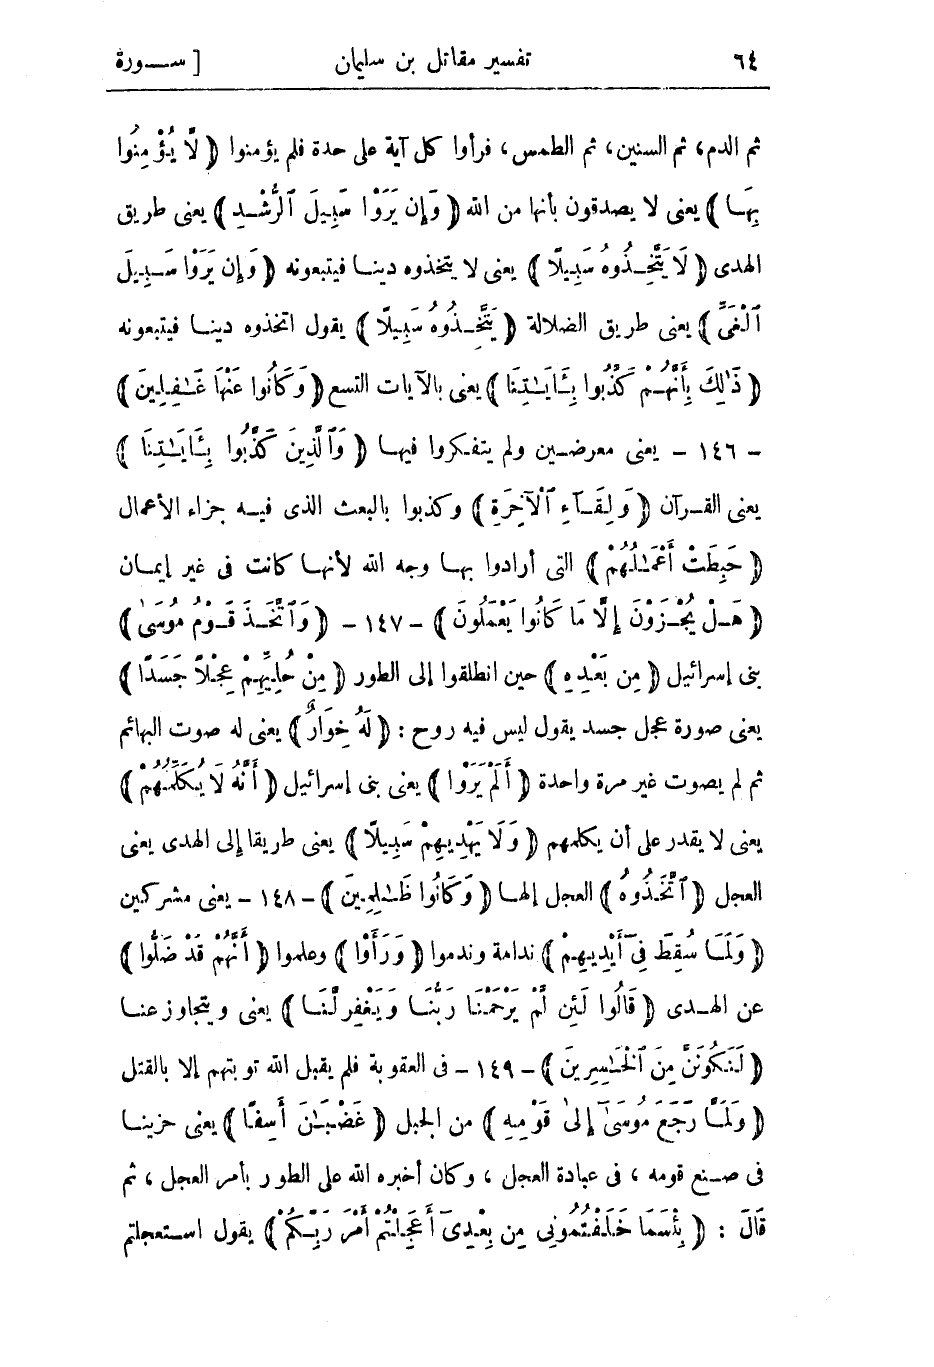 ٦٤ تفسير مقاتل بن سليمان [ ســورة
ثم الدم، ثم السنين، ثم الطمس، فرأوا كل آية على حدة فلم يؤمنوا ﴿ لَّا يُؤْمِنُوا
بِهَـا ﴾ يعنى لا يصدقون بأنها من الله ﴿ وَإِن يَرَوْا سَبِيلَ ٱلرُّشْـدِ ﴾ يعنى طريق
الهدى ﴿ لَا يَتَّخِـذُوهُ سَبِيلًا ﴾ يعنى لا يتخذوه دينـا فيتبعونه ﴿ وَإِن يَرَوْا سَـبِيلَ
ٱلْغَىِّ ﴾ يعنى طريق الضلالة ﴿ يَتَّخِـذُوهُ سَبِيلًا ﴾ يقول اتخذوه دينـا فيتبعونه
﴿ ذَٰلِكَ بِأَنَّهُـمْ كَذَّبُوا بِـَٔايَـٰتِنَا ﴾ يعنى بالآيات التسع ﴿ وَكَانُوا عَنْهَا غَـٰفِلِينَ ﴾
- ١٤٦ - يعنى معرضـين ولم يتفـكروا فيهـا ﴿ وَٱلَّذِينَ كَذَّبُوا بِـَٔايَـٰتِنَا ﴾
يعنى القـرآن ﴿ وَلِقَـآءِ ٱلْآخِرَةِ ﴾ وكذبوا بالبعث الذى فيـه جزاء الأعمال
﴿ حَبِطَتْ أَعْمَـٰلُهُمْ ﴾ التى أرادوا بهـا وجه الله لأنهـا كانت فى غير إيمـان
﴿ هَـلْ يُجْـزَوْنَ إِلَّا مَا كَانُوا يَعْمَلُونَ ﴾ - ١٤٧ - ﴿ وَٱتَّخَـذَ قَـوْمُ مُوسَىٰ ﴾
بنى إسرائيل ﴿ مِن بَعْـدِهِ ﴾ حين انطلقوا إلى الطور ﴿ مِنْ حُلِيِّهِـمْ عِجْـلًا جَسَدًا ﴾
يعنى صورة عجل جسد يقول ليس فيه روح : ﴿ لَهُ خِوَارٌ ﴾ يعنى له صوت البهائم
ثم لم يصوت غير مرة واحدة ﴿ أَلَمْ يَرَوْا ﴾ يعنى بنى إسرائيل ﴿ أَنَّهُ لَا يُكَلِّمُهُمْ ﴾
يعنى لا يقدر على أن يكلمهم ﴿ وَلَا يَهْدِيهِمْ سَبِيلًا ﴾ يعنى طريقا إلى الهدى يعنى
العجل ﴿ ٱتَّخَذُوهُ ﴾ العجل إلهـا ﴿ وَكَانُوا ظَـٰلِمِـينَ ﴾ - ١٤٨ - يعنى مشركين
﴿ وَلَمَّـا سُقِطَ فِىٓ أَيْدِيهِمْ ﴾ ندامة وندموا ﴿ وَرَأَوْا ﴾ وعلموا ﴿ أَنَّهُمْ قَدْ ضَلُّوا ﴾
عن الهـدى ﴿ قَالُوا لَئِن لَّمْ يَرْحَمْنَا رَبُّنَـا وَيَغْفِر لَّنَـا ﴾ يعنى ويتجاوز عنـا
﴿ لَنَكُونَنَّ مِنَ ٱلْخَـٰسِرِينَ ﴾ - ١٤٩ - فى العقوبة فلم يقبل الله توبتهم إلا بالقتل
﴿ وَلَمَّـا رَجَعَ مُوسَىٰٓ إِلَىٰ قَوْمِهِ ﴾ من الجبل ﴿ غَضْبَـٰنَ أَسِفًا ﴾ يعنى حزينـا
فى صـنع قومه ، فى عبادة العجل ، وكان أخبره الله على الطور بأمر العجل ، ثم
قَالَ : ﴿ بِئْسَمَا خَلَفْتُمُونِى مِن بَعْدِىٓ أَعَجِلْتُمْ أَمْرَ رَبِّكُمْ ﴾ يقول اسـتعجلتم